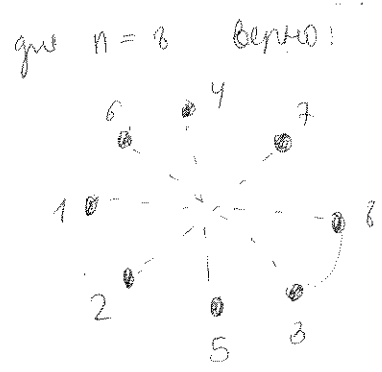 для n = 8 верно:
6 4 7
1 8
2 5 3